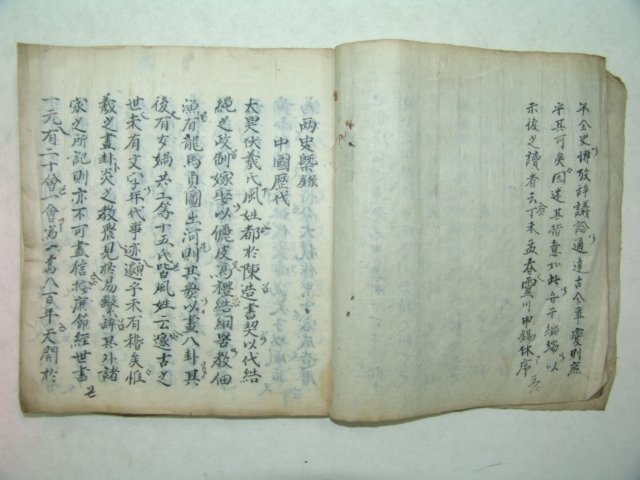 年全史博攷梓議論通達古今事變則庶
乎其可矣因述其指意如此弁于編端以
示後之讀者云丁未孟春靈川申錫休序
両史槩錄
中國歷代
太昊伏羲氏風姓都於陳造書契以代結
繩之政制嫁娶以儷皮爲禮結網罟敎佃
漁有龍馬負圖出河則其數以畫八卦其
後有女媧共工等十五氏皆風姓云邃古之
世未有文字年代事迹邈乎未有稽矣惟
羲之畫卦炎之敎農見於易繫辭其外諸
家之所記則亦不可盡信按康節經世書
一元有二十會一會爲一萬八百年天開於